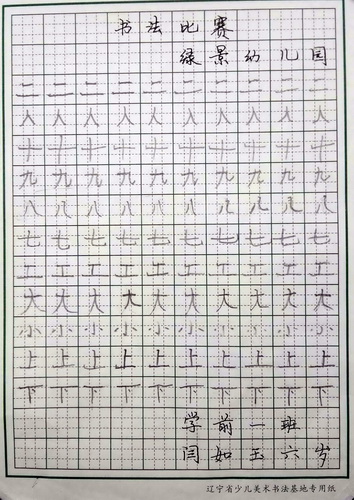 书法比赛
绿景幼儿园
二二二二二二二二二二
人人人人人人人人人人
十十十十十十十十十十
九九九九九九九九九九
八八八八八八八八八八
七七七七七七七七七七
工工工工工工工工工工
大大大大大大大大大大
小小小小小小小小小小
上上上上上上上上上上
下下下下下下下下下下
学前一班
闫如玉六岁
辽宁省少儿美术书法基地专用纸